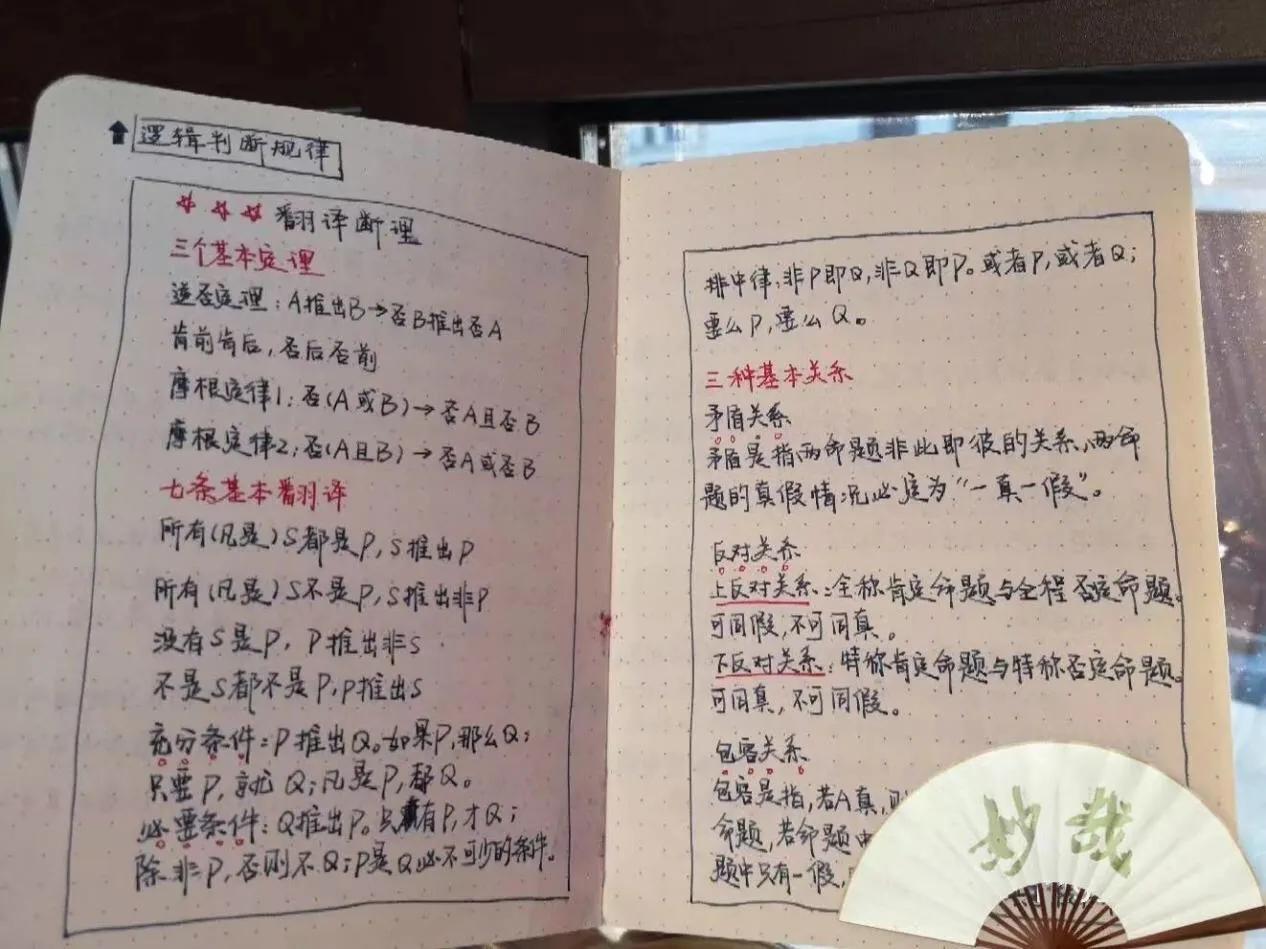 逻辑判断规律
翻译断理
三个基本定理
逆否定理：A推出B→否B推出否A
肯前肯后，否后否前
摩根定律1：否(A或B)→否A且否B
摩根定律2：否(A且B)→否A或否B
七条基本翻译
所有(凡是)S都是P，S推出P
所有(凡是)S不是P，S推出非P
没有S是P，P推出非S
不是S都不是P，P推出S
充分条件：P推出Q。如果P，那么Q；
只要P，就Q；凡是P，都Q。
必要条件：Q推出P。只有P，才Q；
除非P，否则不Q；P是Q必不可少的条件。
排中律：非P即Q，非Q即P。或者P，或者Q；
要么P，要么Q。
三种基本关系
矛盾关系
矛盾是指两命题非此即彼的关系，两命
题的真假情况必定为“一真一假”。
反对关系
上反对关系：全称肯定命题与全程否定命题。
可同假，不可同真。
下反对关系：特称肯定命题与特称否定命题。
可同真，不可同假。
包容关系
包容是指，若A真，则
命题，若命题中
题中只有一假，
妙哉